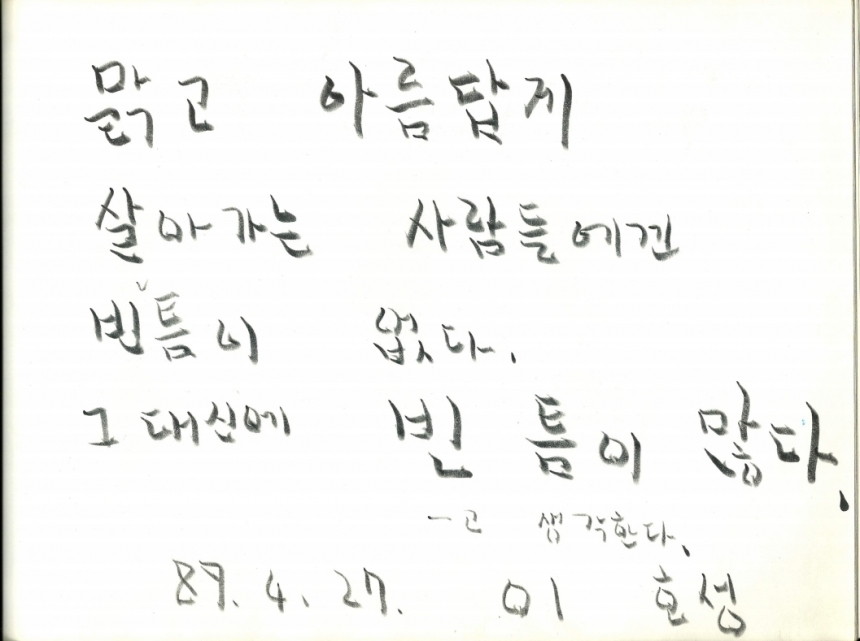 맑고 아름답게
살아가는 사람들에겐
빈∨틈이 없다.
그 대신에 빈 틈이 많다.
-고 생각한다.
89. 4. 27. 이 호성